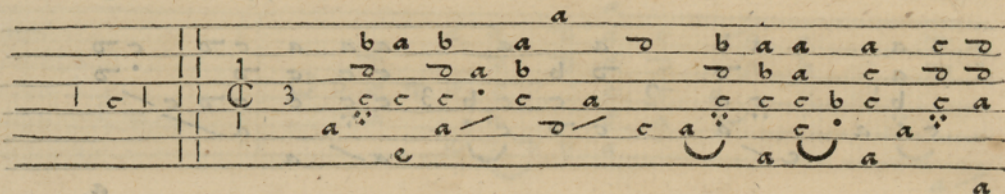 a
b a b a d b a a a c d
d d a b d b a c d d
c ¢ 3 c c c c a c c c b c c a
a a d c a c a
e a a
a